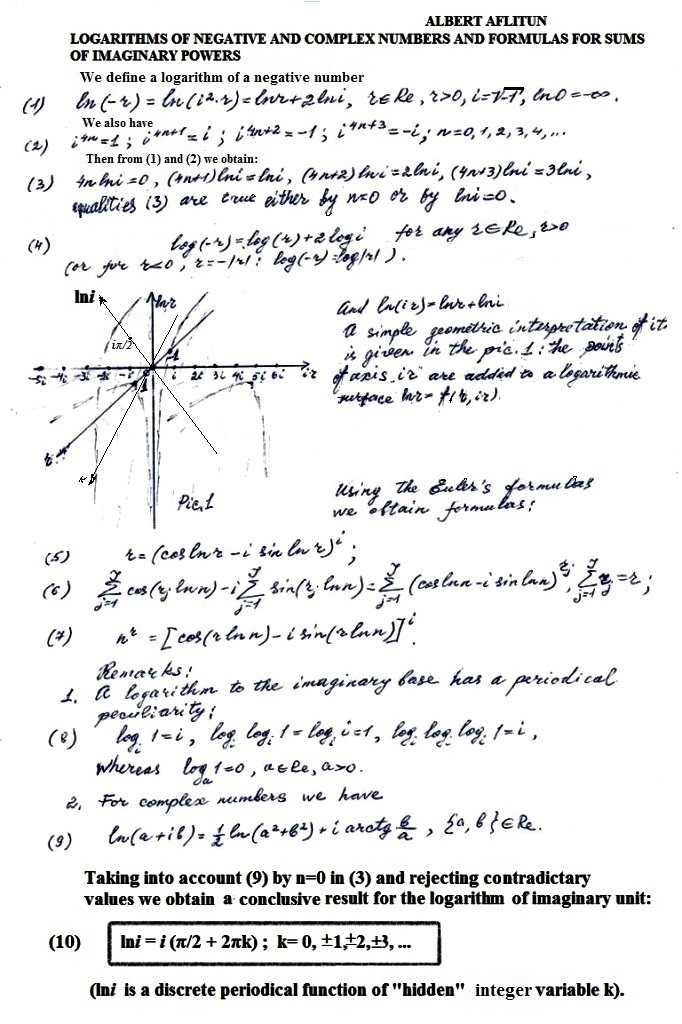 ALBERT AFLITUN
LOGARITHMS OF NEGATIVE AND COMPLEX NUMBERS AND FORMULAS FOR SUMS
OF IMAGINARY POWERS
We define a logarithm of a negative number
(1) ln(-r) = ln(i²·r) = lnr + 2lni, r∈Re, r>0, i=√-1, ln0=-∞.
We also have
(2) i⁴ⁿ=1; i⁴ⁿ⁺¹=i; i⁴ⁿ⁺²=-1; i⁴ⁿ⁺³=-i; n=0,1,2,3,4,...
Then from (1) and (2) we obtain:
(3) 4n lni=0, (4n+1)lni=lni, (4n+2)lni=2lni, (4n+3)lni=3lni,
equalities (3) are true either by n=0 or by lni=0.
(4) log(-r)=log(r)+2logi for any r∈Re, r>0
(or for r<0, r=-|r|: log(-r)=log|r|).
lni
lnr
iπ/2
-1
-5i -4i -3i -2i -i i 2i 3i 4i 5i 6i ir
1
r
Pic.1
And ln(ir)=lnr+lni
A simple geometric interpretation of it
is given in the pic. 1: the points
of axis ir are added to a logarithmic
surface lnr=f(r,ir).
Using the Euler's formulas
we obtain formulas:
(5) r=(cos lnr - i sin lnr)ⁱ;
(6) Σ_{j=1}^{J} cos(r_j lnn) - i Σ_{j=1}^{J} sin(r_j lnn) = Σ_{j=1}^{J} (cos lnn - i sin lnn)^{r_j}, Σ_{j=1}^{J} r_j = r;
(7) nʳ = [cos(r lnn) - i sin(r lnn)]ⁱ.
Remarks:
1. A logarithm to the imaginary base has a periodical
peculiarity:
(8) log_i 1=i, log_i log_i 1=log_i i=1, log_i log_i log_i 1=i,
whereas log_a 1=0, a∈Re, a>0.
2. For complex numbers we have
(9) ln(a+ib)=½ ln(a²+b²)+i arctg b/a, {a,b}∈Re.
Taking into account (9) by n=0 in (3) and rejecting contradictary
values we obtain a conclusive result for the logarithm of imaginary unit:
(10) lni = i (π/2 + 2πk) ; k= 0, ±1,±2,±3, ...
(lni is a discrete periodical function of "hidden" integer variable k).